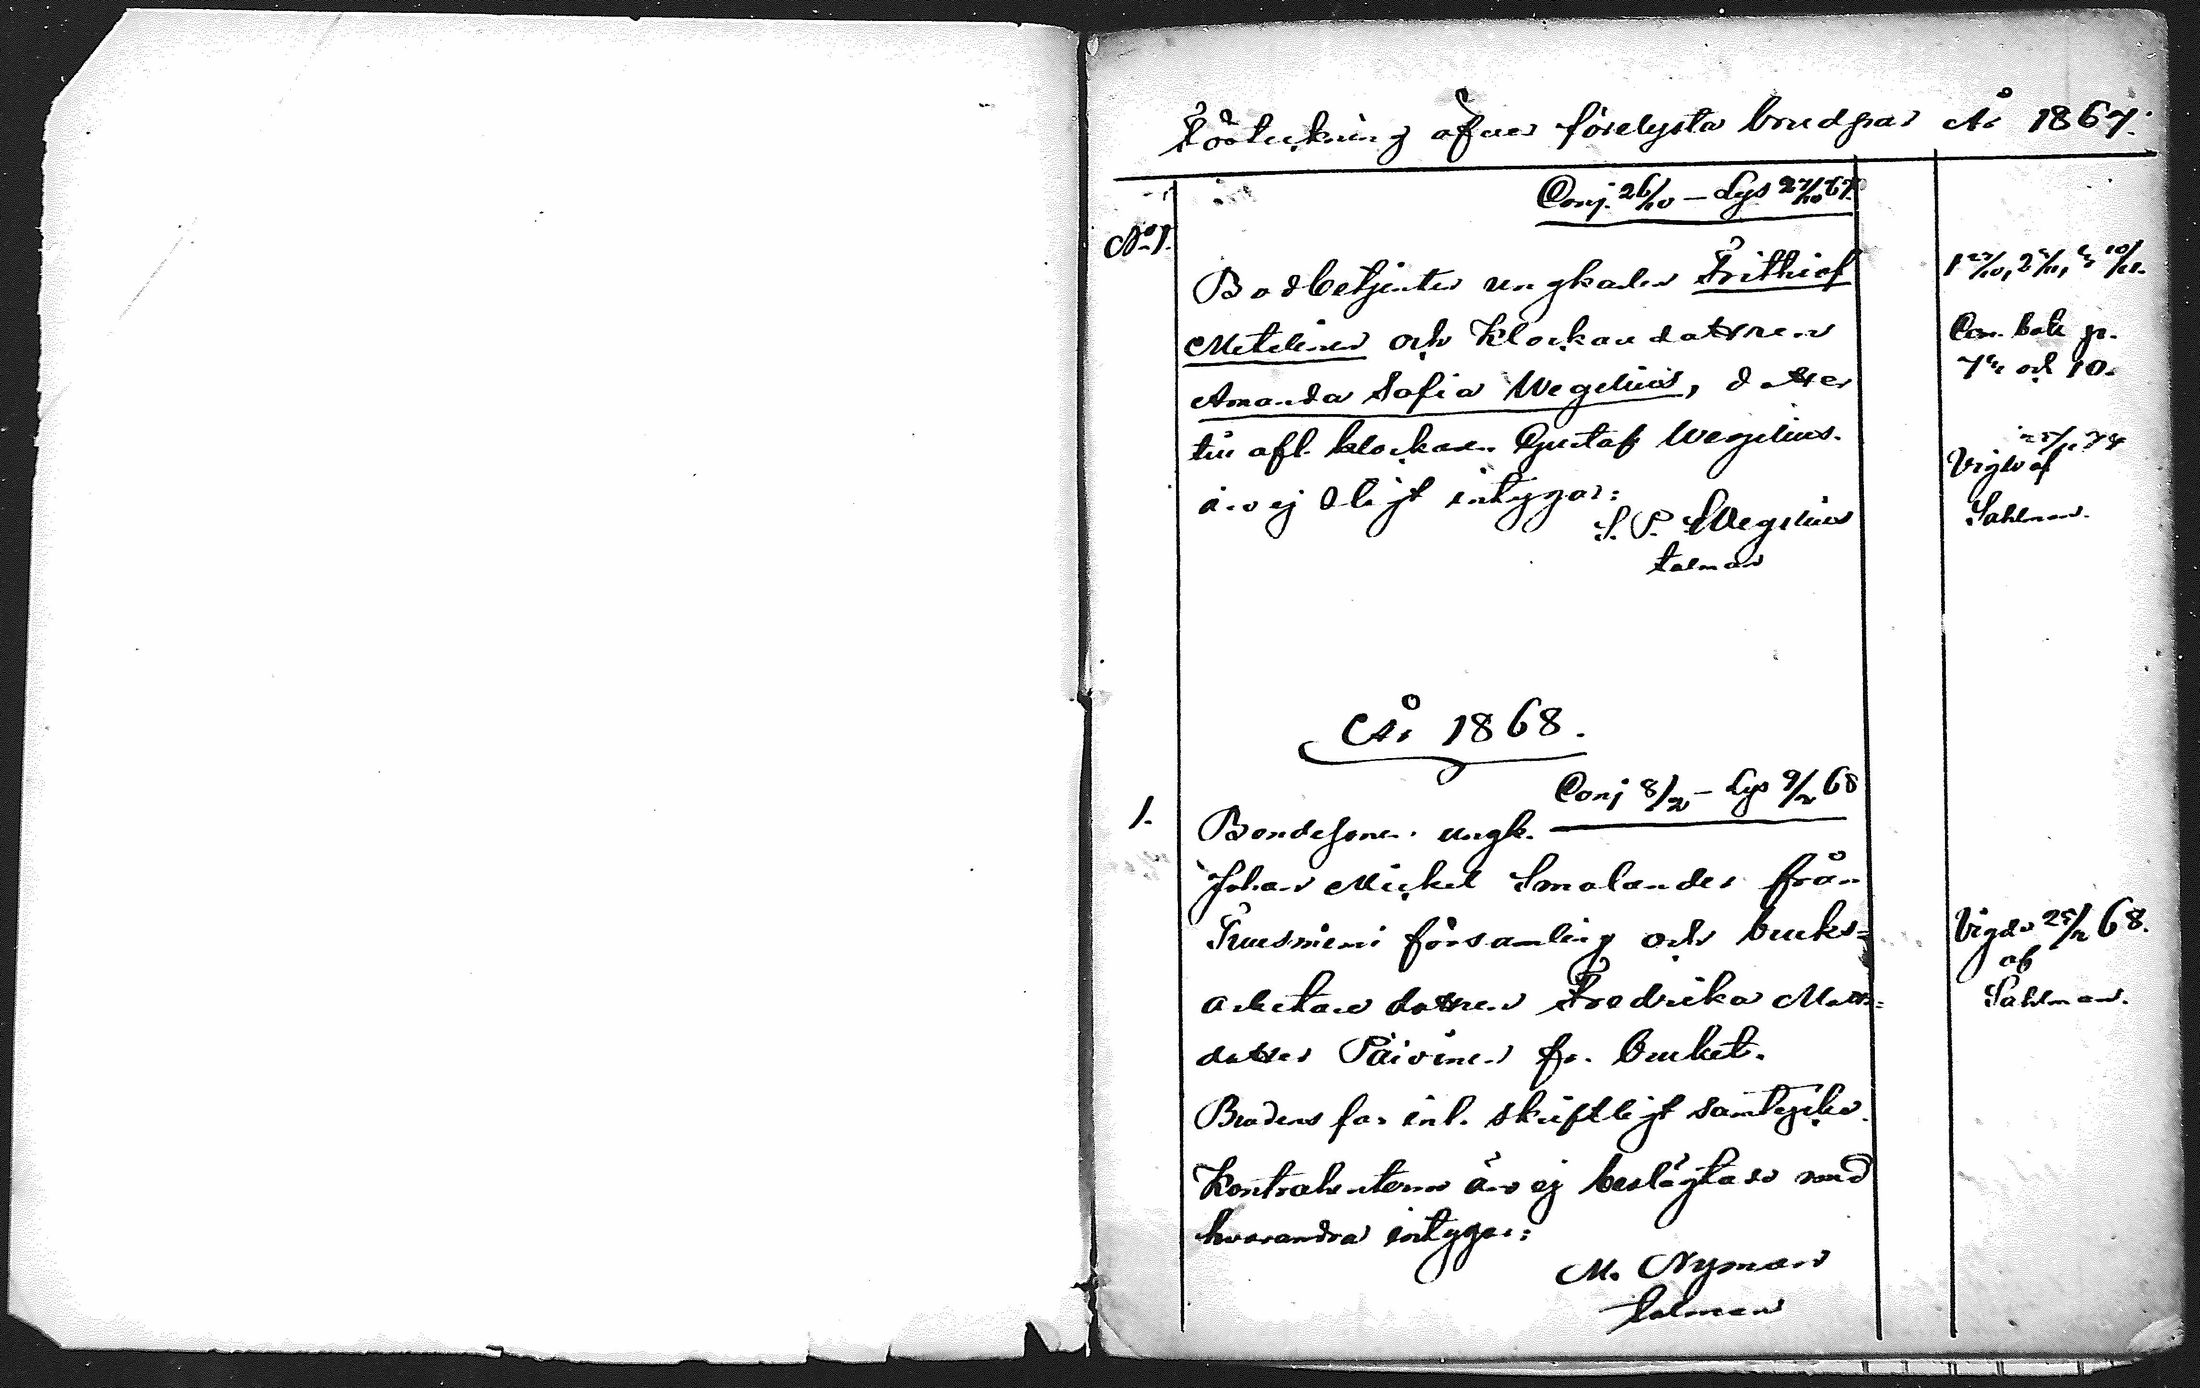 Förteckning öfver förelysta brudpar År 1867.
Conj. 26/10 – Lys 27/10 67.
No 1.
Bodbetjenten ungkarlen Frithiof
och Klockaredottren
Amanda Sofia Wegelius, dotter
till afl. klockaren Gustaf Wegelius.
äro ej intygar:
S. P. Wegelius
talman
10/11.
Com. bok p.
och 10.
Vigde af
Sahlman.
År 1868.
Conj 8/2 – Lys 9/2 68
1.
Bondesonen ungk.
Johan Mickel Smolander från
Tuusniemi församling och bruks-
arbetare dottren Fredrika Matts-
dotter Päivinen fr. bruket.
Brudens far inl. skriftligt samtycke.
Kontrahenterne äro ej beslägtade med
hvarandra intygar:
M. Nyman
talman
Vigde 25/2 68.
af
Sahlman.